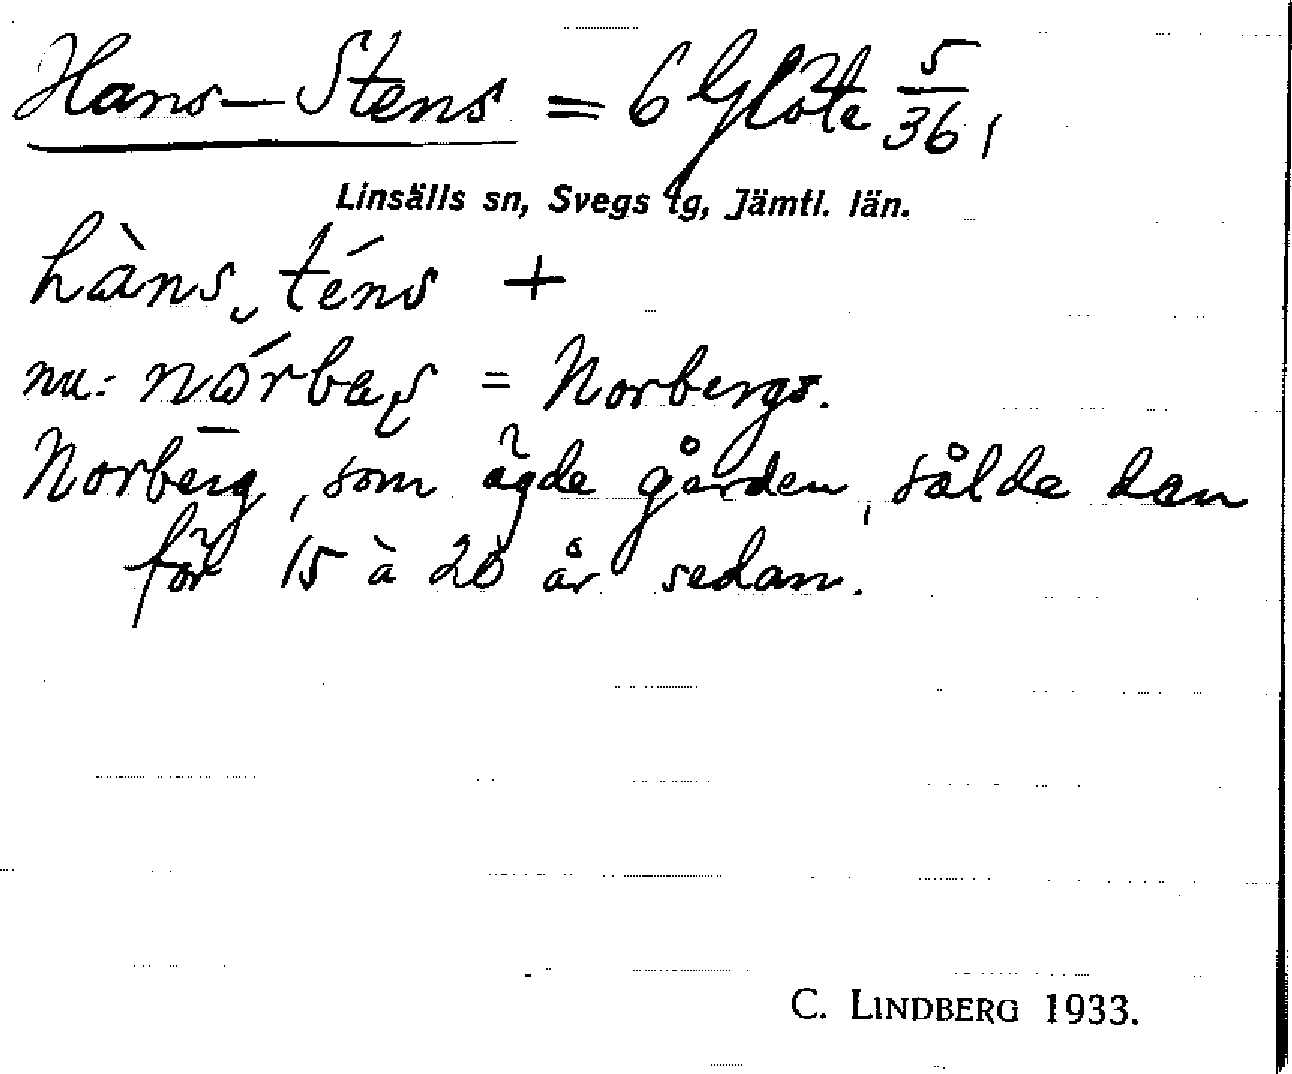 Hans-Stens = 6 Glöte 5/36,
Linsälls sn, Svegs tg, Jämtl. län.
hàns téns +
nu: = Norbergs.
Norberg, som ägde gården, sålde den
för 15 à 20 år sedan.
C. LINDBERG 1933.